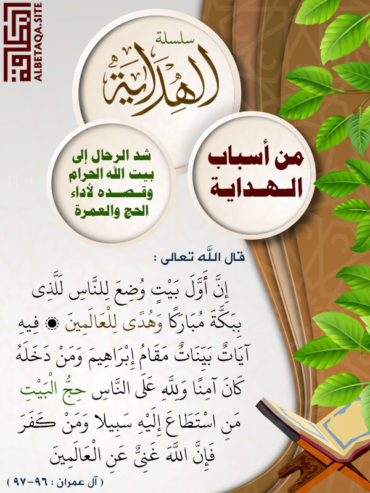 البطاقة
ALBETAQA.SITE
سلسلة
الهداية
من أسباب
الـهـدايـة
شد الرحال إلى
بيت الله الحرام
وقصـــده لأداء
الحج والعمرة
قال اللَّه تعالى :
إِنَّ أَوَّلَ بَيْتٍ وُضِعَ لِلنَّاسِ لَلَّذِى
بِبَكَّةَ مُبَارَكًا وَهُدًى لِلْعَالَمِينَ ۞ فِيهِ
آيَاتٌ بَيِّنَاتٌ مَقَامُ إِبْرَاهِيمَ وَمَنْ دَخَلَهُ
كَانَ آمِنًا وَلِلَّهِ عَلَى النَّاسِ حِجُّ الْبَيْتِ
مَنِ اسْتَطَاعَ إِلَيْهِ سَبِيلا وَمَنْ كَفَرَ
فَإِنَّ اللَّهَ غَنِىٌّ عَنِ الْعَالَمِينَ
( آل عمران : ٩٦-٩٧ )